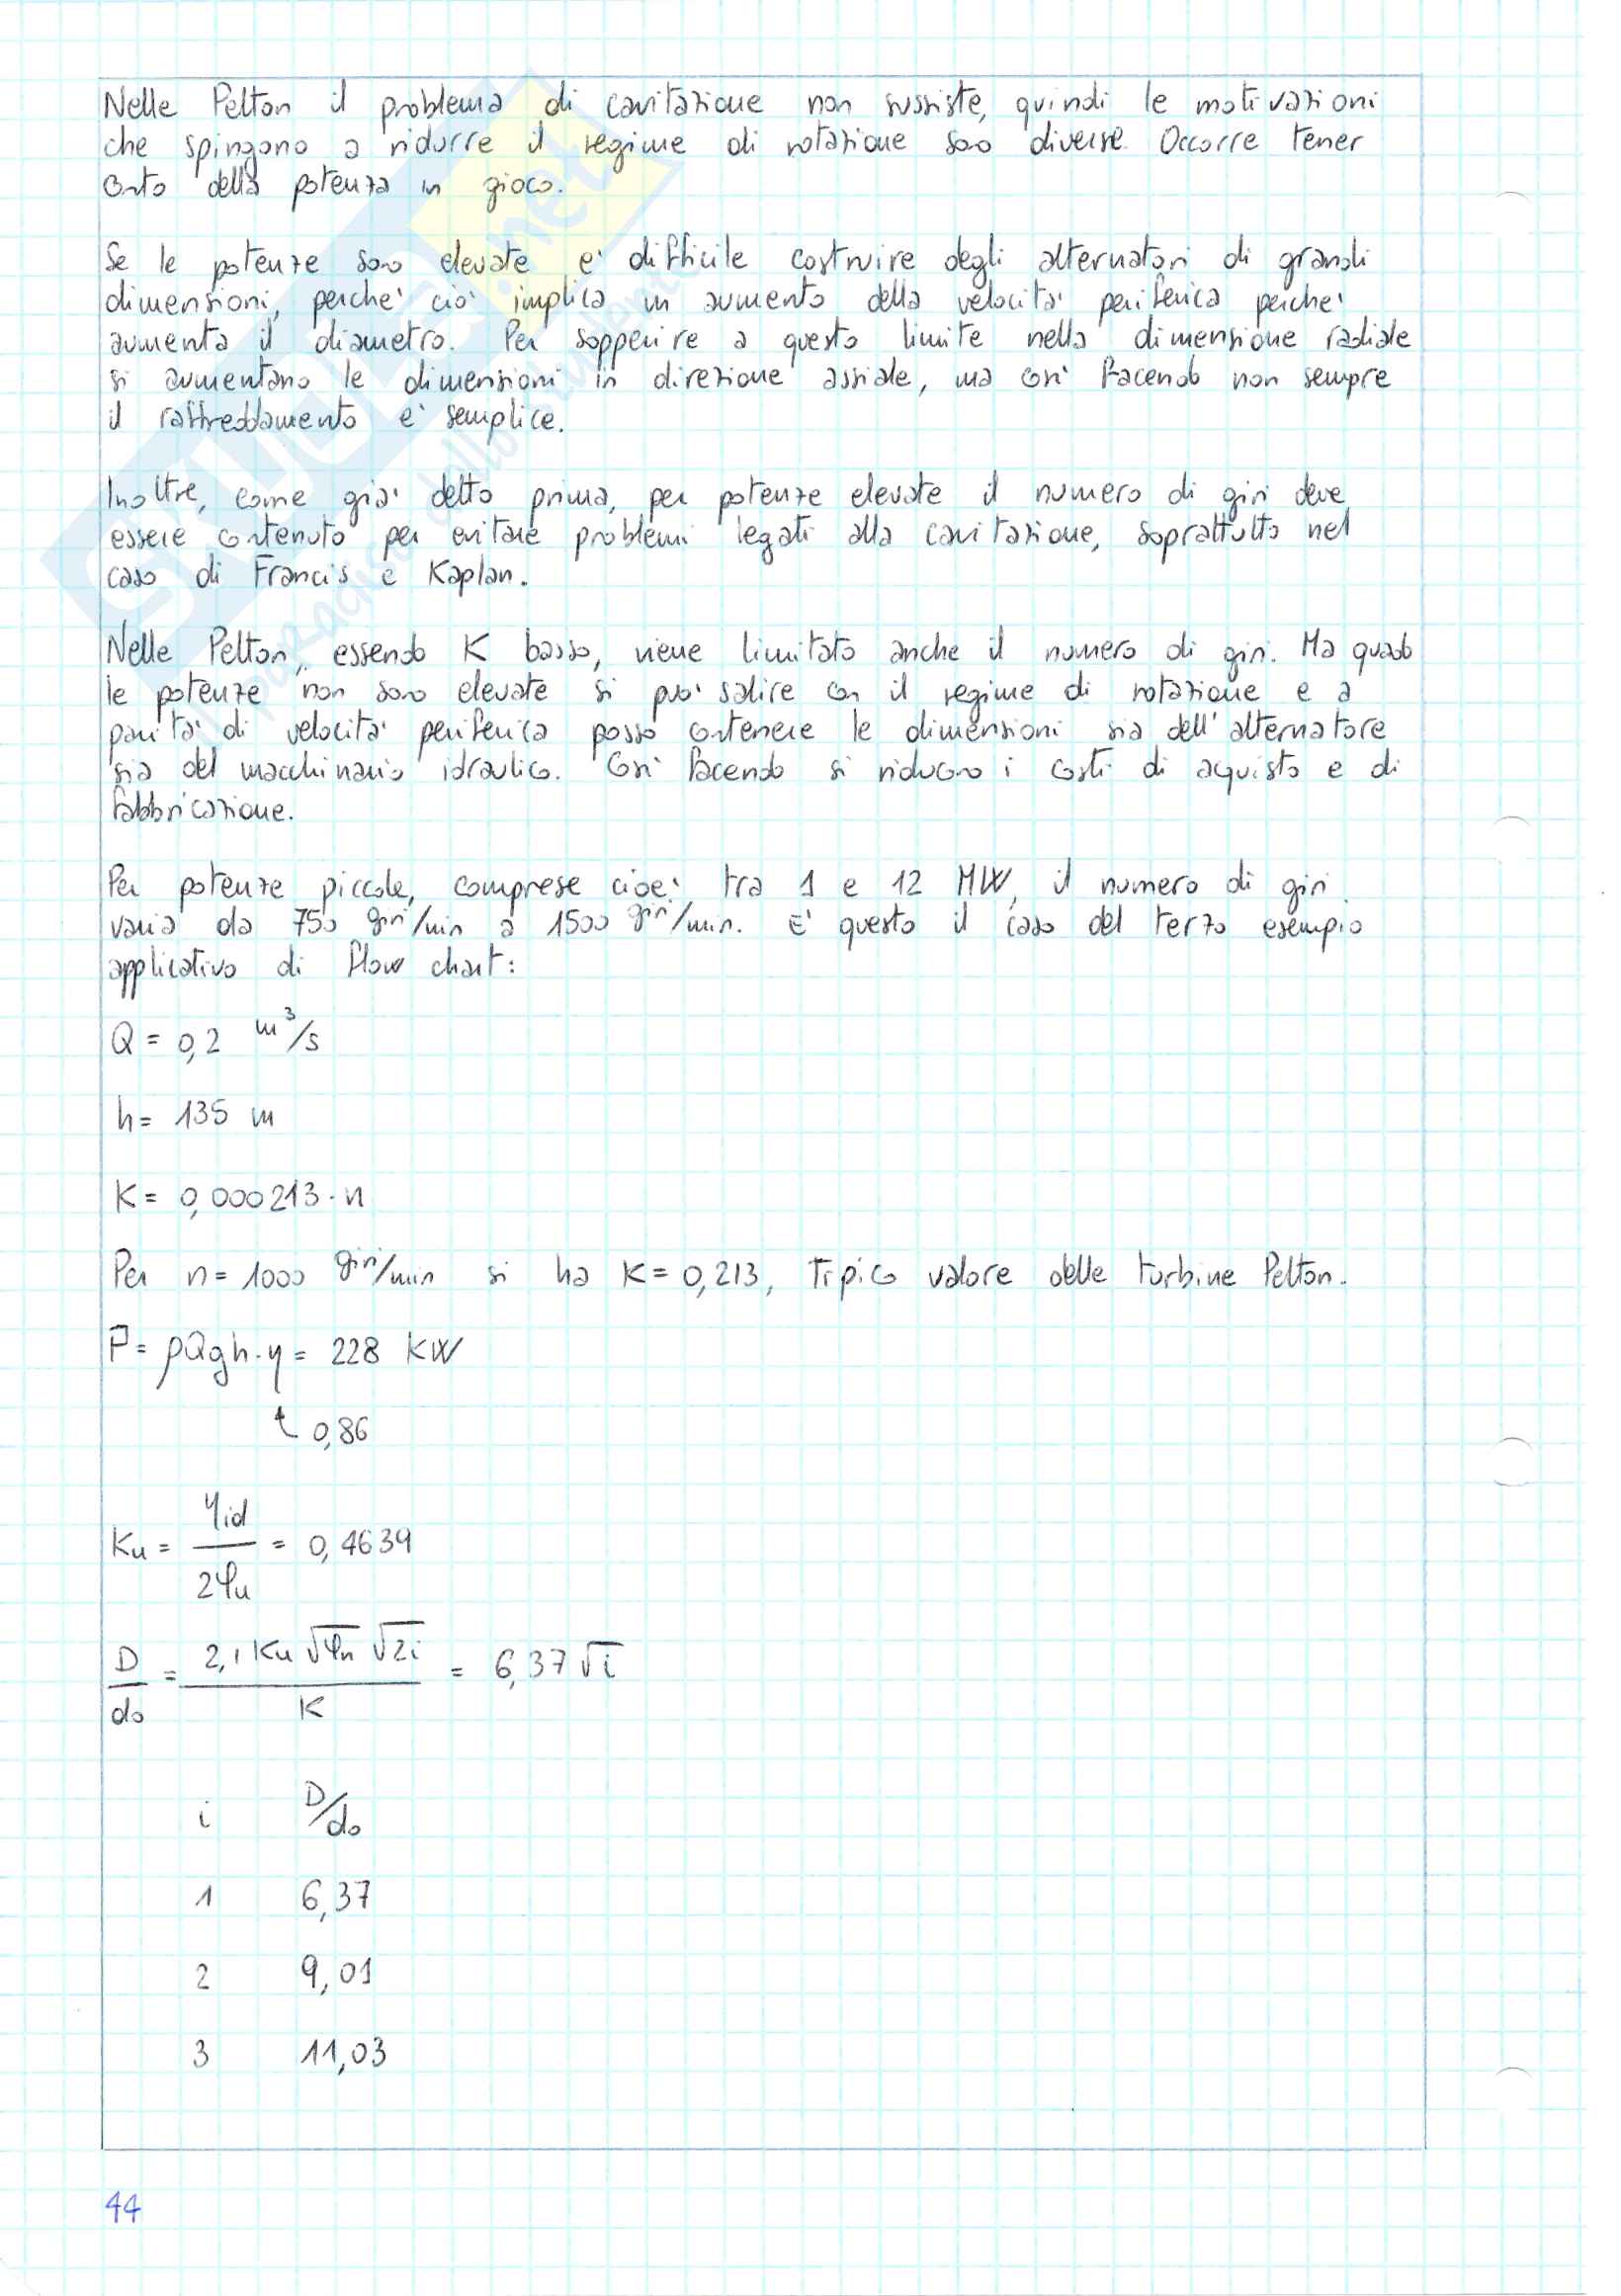 Nelle Pelton il problema di cavitazione non sussiste, quindi le motivazioni
che spingono a ridurre il regime di rotazione sono diverse. Occorre tener
conto della potenza in gioco.
Se le potenze sono elevate e' difficile costruire degli alternatori di grandi
dimensioni, perche' cio' implica un aumento della velocita' periferica perche'
aumenta il diametro. Per sopperire a questo limite nella dimensione radiale
si aumentano le dimensioni in direzione assiale, ma cosi' facendo non sempre
il raffreddamento e' semplice.
Inoltre, come gia' detto prima, per potenze elevate il numero di giri deve
essere contenuto per evitare problemi legati alla cavitazione, soprattutto nel
caso di Francis e Kaplan.
Nelle Pelton, essendo K basso, viene limitato anche il numero di giri. Ma quando
le potenze non sono elevate si puo' salire con il regime di rotazione e a
parita' di velocita' periferica posso contenere le dimensioni sia dell'alternatore
sia del macchinario idraulico. Cosi' facendo si riducono i costi di acquisto e di
fabbricazione.
Per potenze piccole, comprese cioe' tra 1 e 12 MW, il numero di giri
varia da 750 giri/min a 1500 giri/min. E' questo il caso del terzo esempio
applicativo di flow chart:
Q = 0,2 m³/s
h = 135 m
K = 0,000213 · n
Per n = 1000 giri/min si ha K = 0,213, tipico valore delle turbine Pelton.
P = ρQgh · η = 228 KW
0,86
Ku = ηid / 2φu = 0,4639
D/do = 2,1 Ku √φn √2i / K = 6,37 √i
i D/do
1 6,37
2 9,01
3 11,03
44
SKUOLA.net